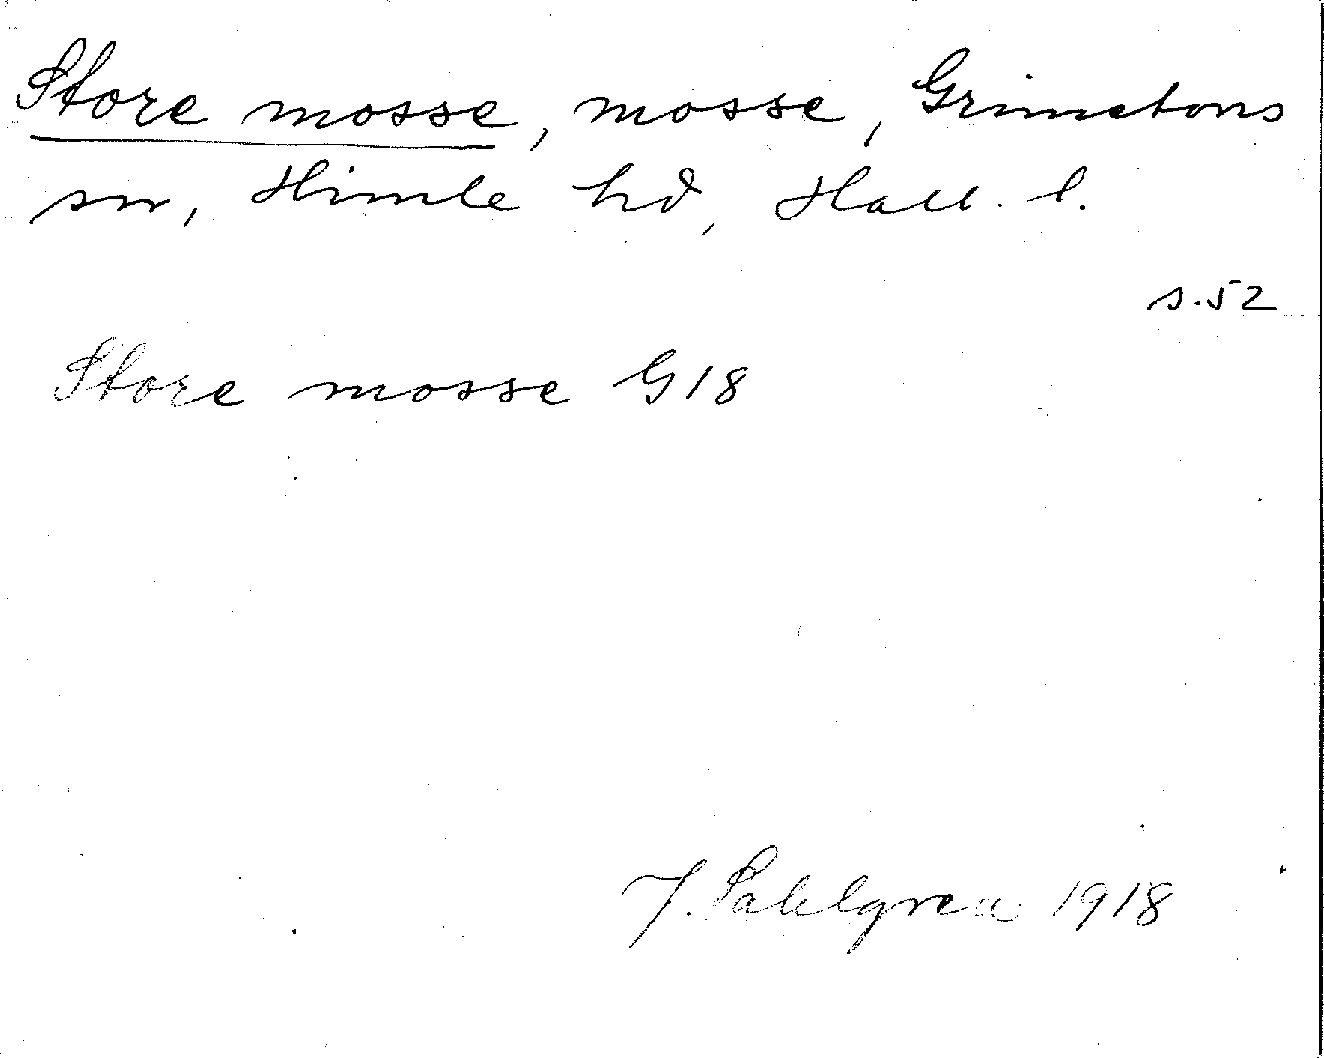 Store mosse, mosse, Grimetons
sn, Himle hd, Hall. l.
s. 52
Store mosse G18
J. Sahlgren 1918